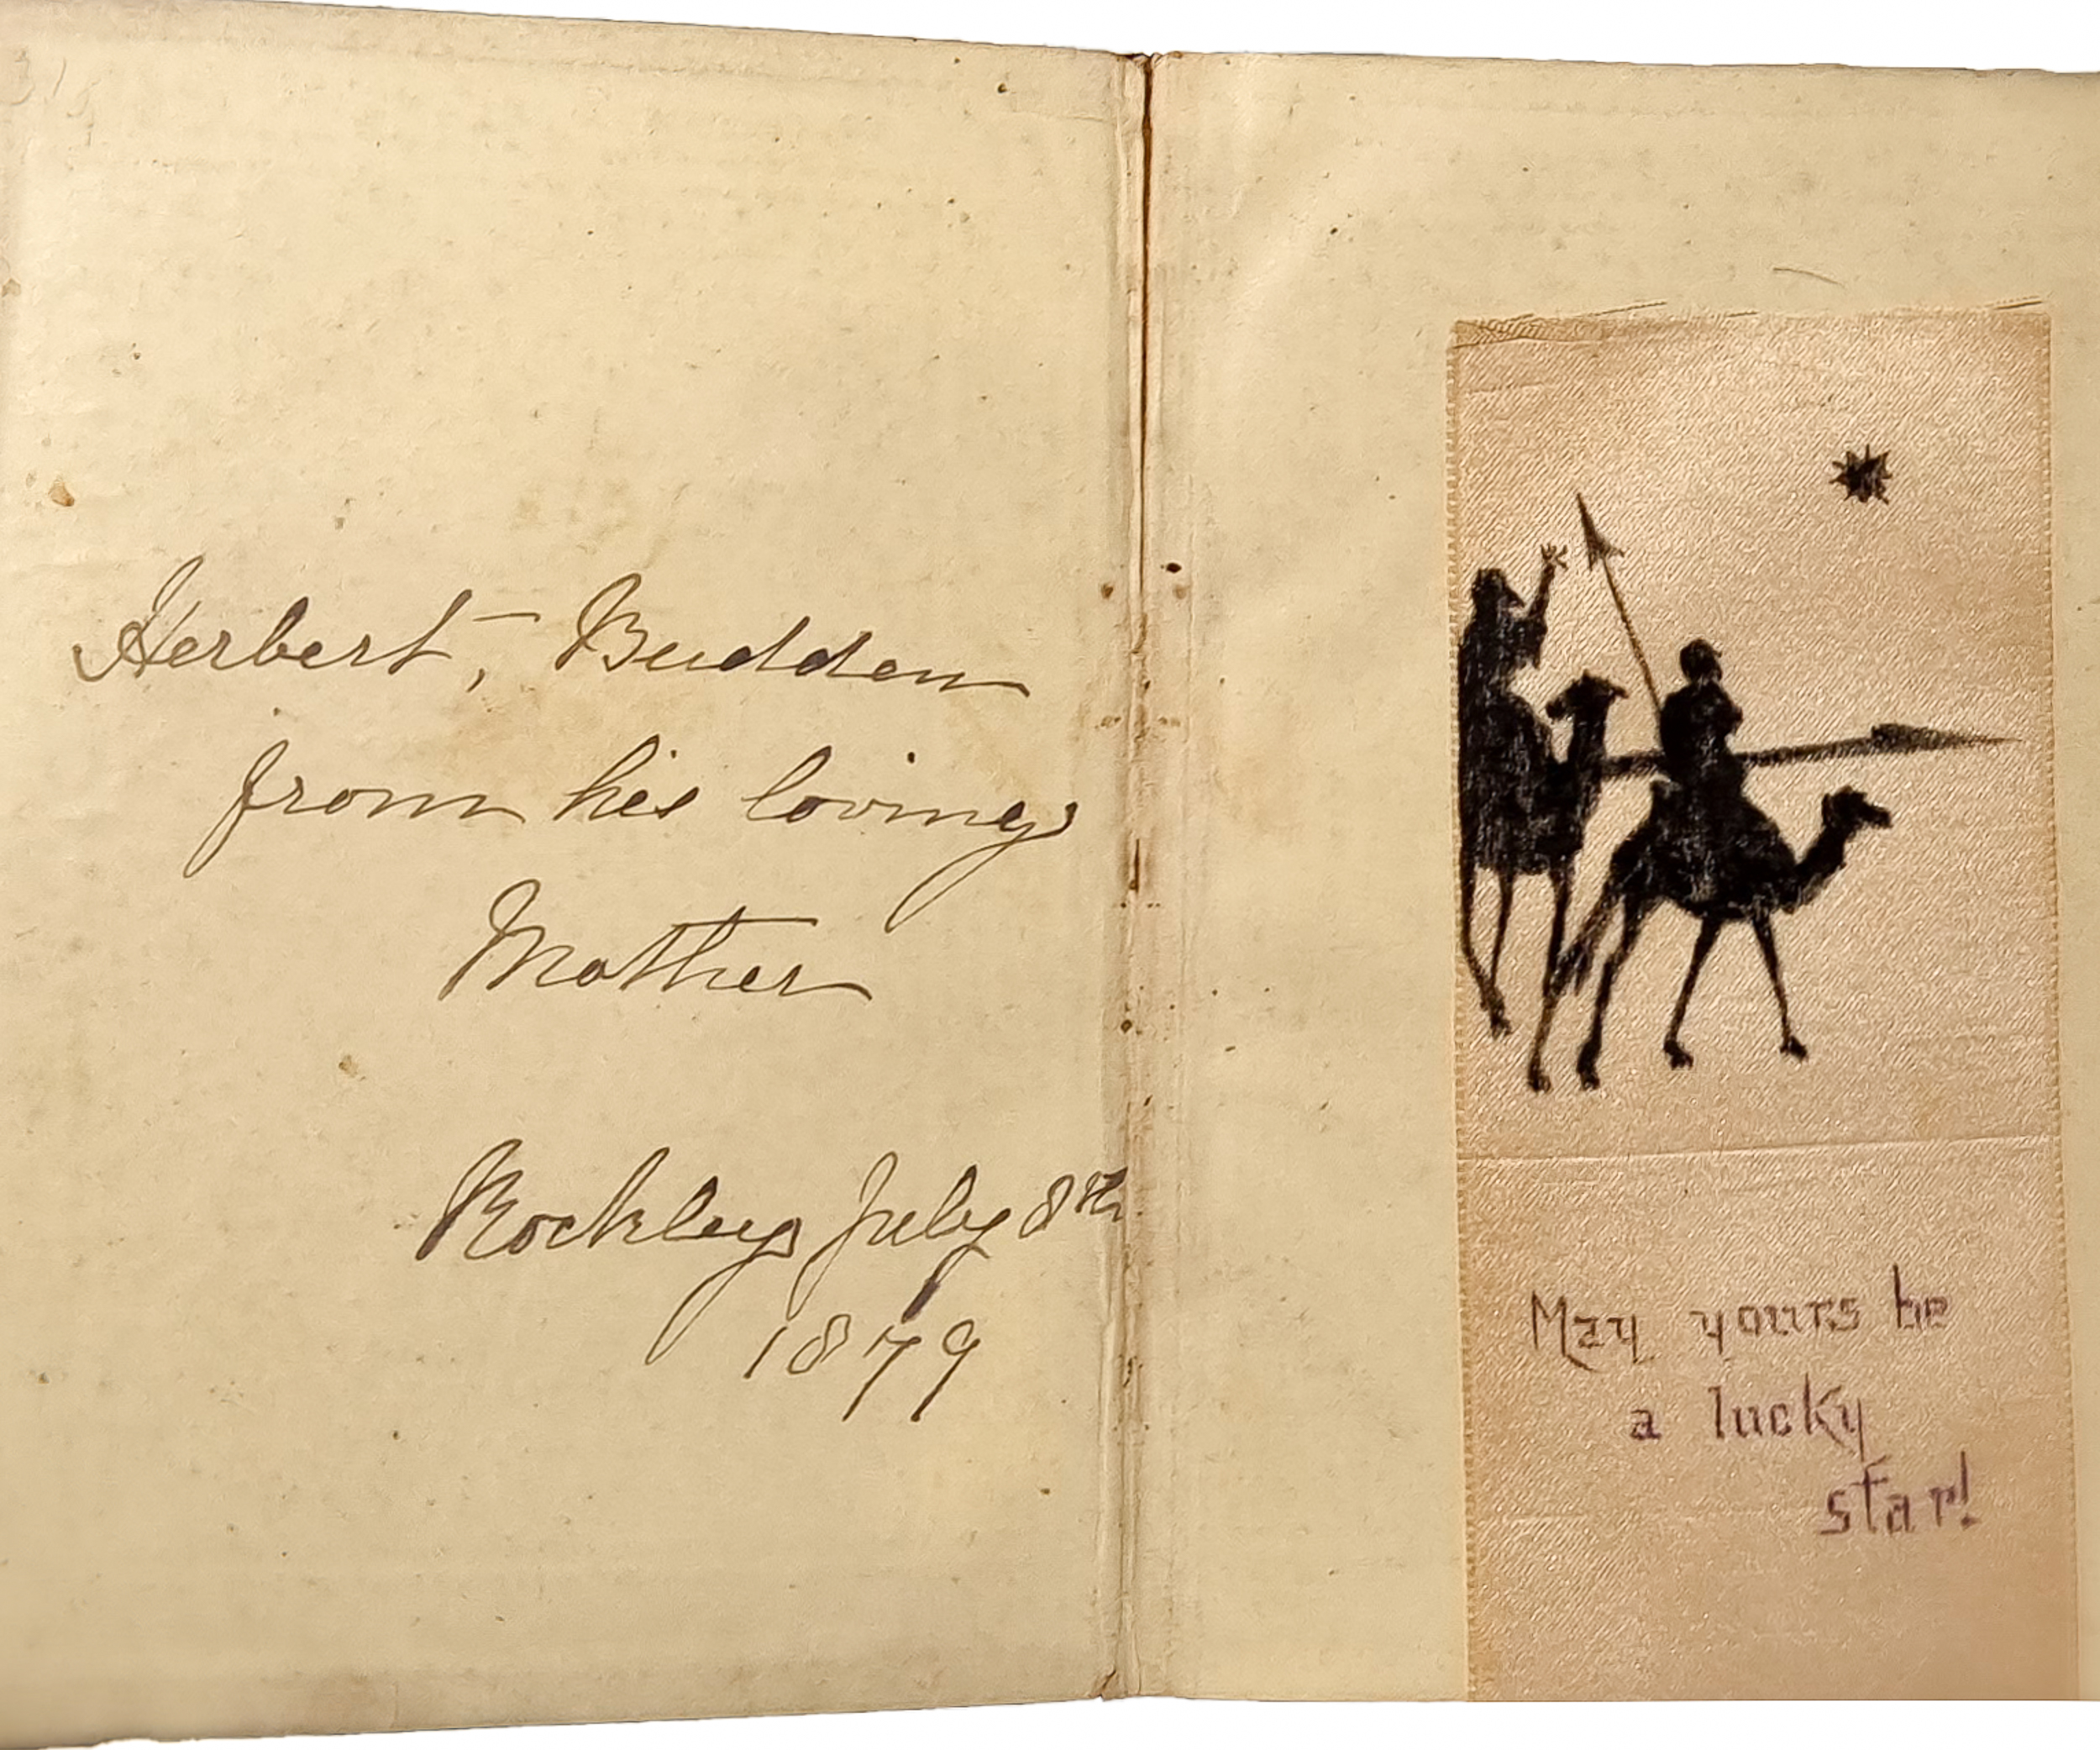 Herbert, Budden
from his loving
Mother
Rockley July 8th
1879
May yours be
a lucky
star!